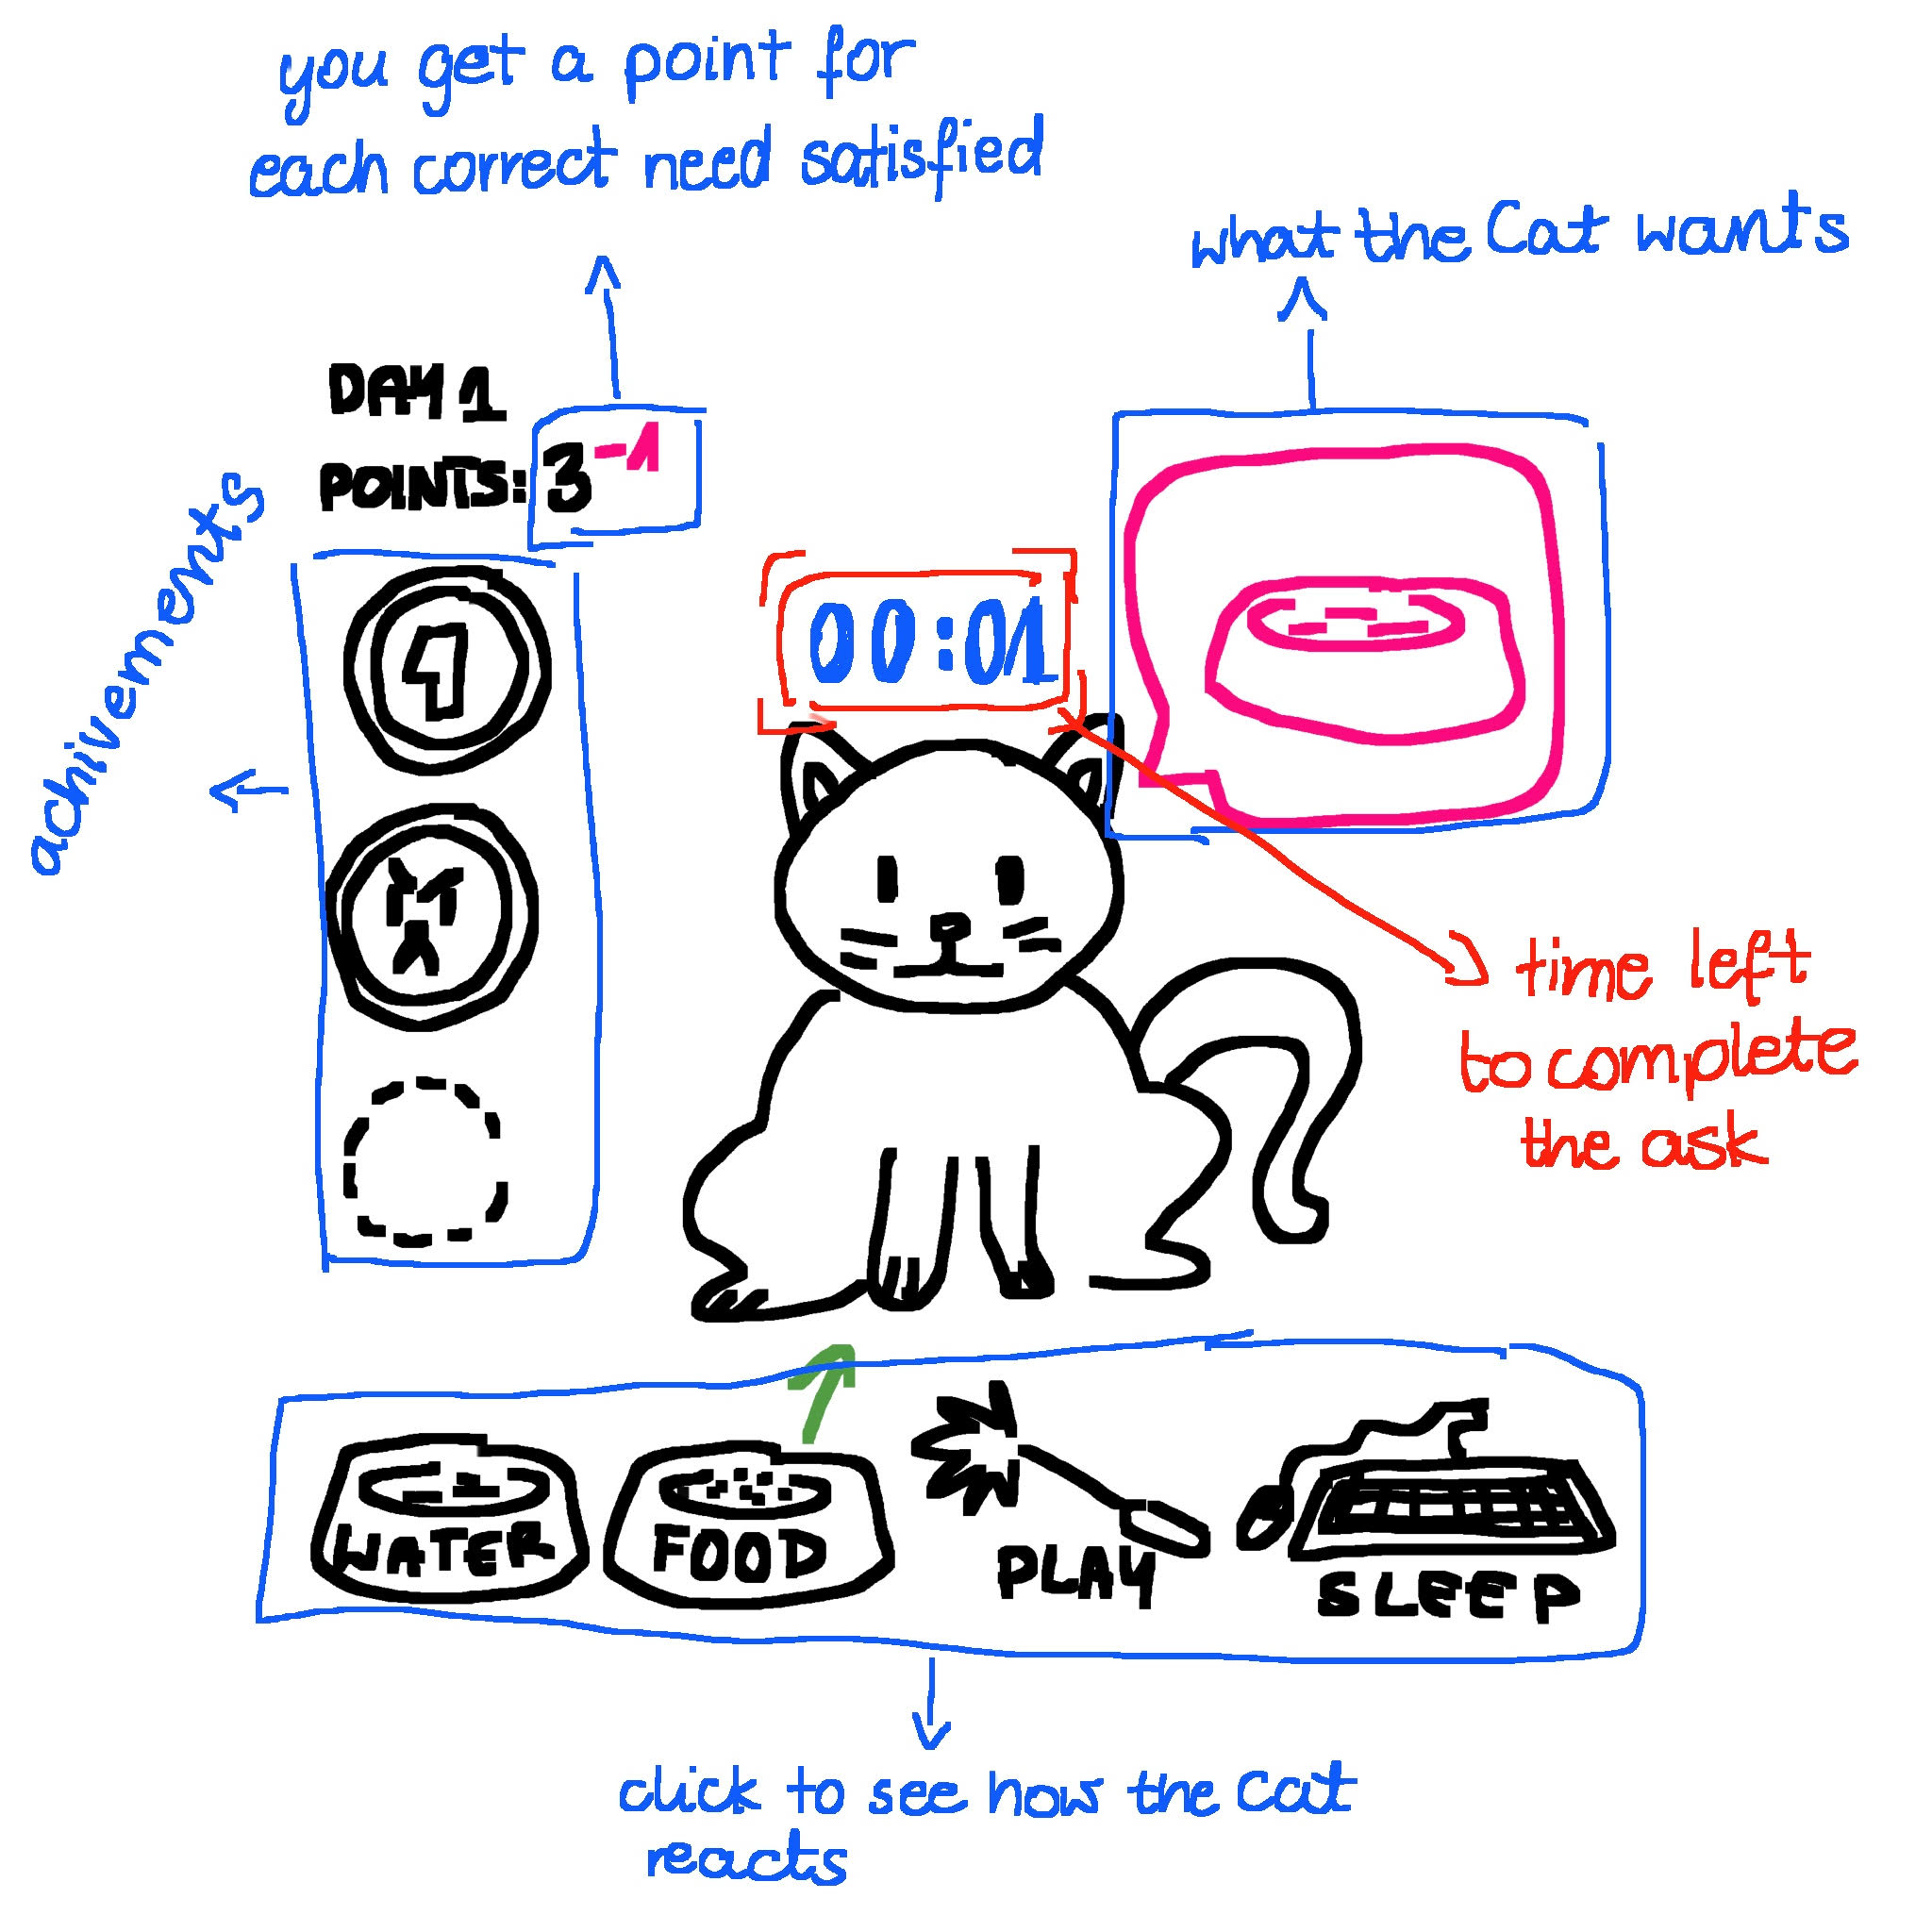 you get a point for
each correct need satisfied
what the Cat wants
DAY 1
POINTS: 3 -1
achivements
00:01
time left
to complete
the ask
WATER
FOOD
PLAY
SLEEP
click to see how the cat
reacts